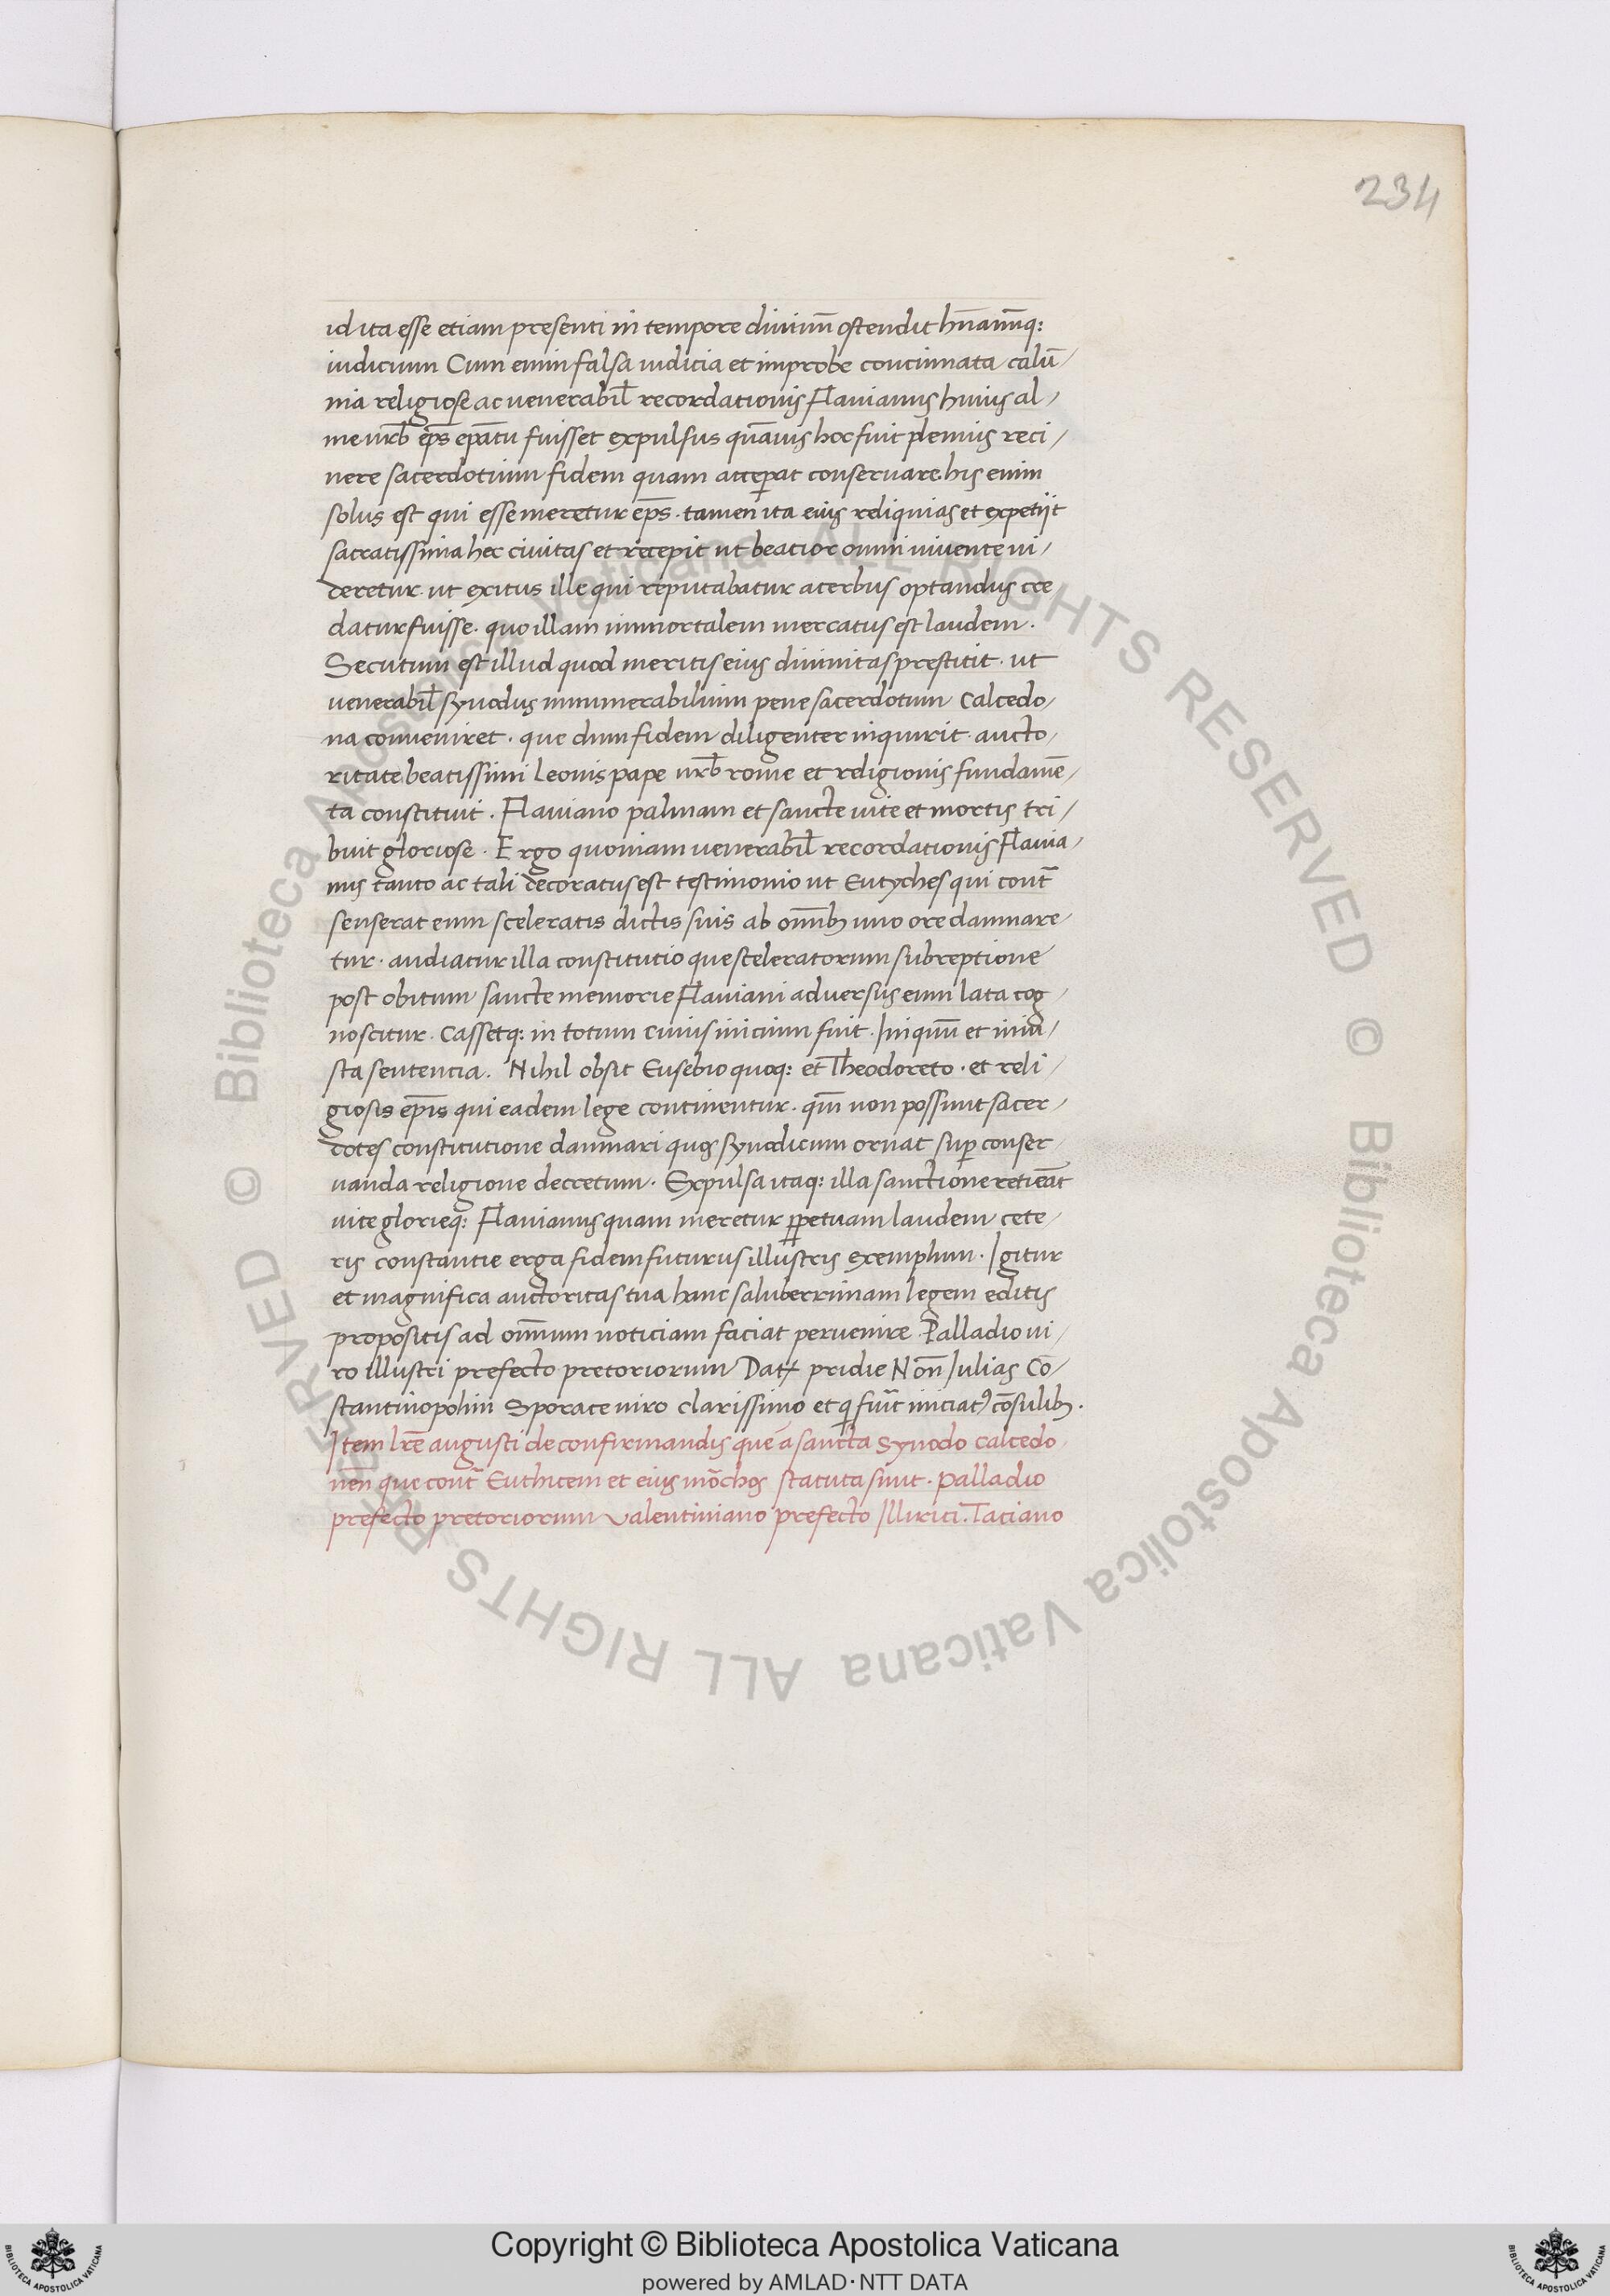 234
id ita esse etiam presenti in tempore diuinū ostendit hūanūq:
iudicium Cum enim falsa iudicia et improbe concinnata calū/
nia religiose ac venerabil̄ recordationis Flauianus huius al/
me urb̄ ep̄s ep̄atu fuisset expulsus quāuis hoc fuit plenius reti/
nere sacerdotium fidem quam acceꝑat conseruare his enim
solus est qui esse meretur ep̄s. tamen ita eius reliquias et expetijt
sacratissima hec ciuitas et recepit ut beatior omni uiuente ui/
deretur. ut exitus ille qui reputabatur acerbus optandus cre
datur fuisse. quo illam immortalem mercatus est laudem.
Secutum est illud quod meritis eius diuinitas prestitit. ut
venerabil̄ synodus innumerabilium pene sacerdotum Calcedo/
na conueniret. que dum fidem diligenter inquirit. aucto/
ritate beatissimi Leonis pape urb̄ rome et religionis fundamē/
ta constituit. Flauiano palmam et sancte uite et mortis tri/
buit gloriose. Ergo quoniam uenerabil̄ recordationis Flauia/
nus tanto ac tali decoratus est testimonio ut Eutyches qui cont̄
senserat eum sceleratis dictis suis ab om̄ib; uno ore damnare/
tur. audiatur illa constitutio que sceleratorum subreptione
post obitum sancte memorie Flauiani aduersus eum lata cog/
noscitur. Cassetq: in totum cuius inicium fuit. Iniquū et iniu/
sta sentencia. Nihil obsit Eusebio quoq: et Theodoreto. et reli/
giosis ep̄is qui eadem lege continentur. qm̄ non possunt sacer/
dotes constitutione damnari quos synodicum ornat suꝑ conser/
uanda religione decretum. Expulsa itaq: illa sanctione retieāt
uite glorieq: Flauianus quam meretur ꝑpetuam laudem cete/
ris constantie erga fidem futurus illustris exemplum. Igitur
et magnifica auctoritas tua hanc saluberrimam legem editis
propositis ad om̄ium noticiam faciat peruenire. Palladio ui/
ro illustri prefecto pretoriorum Dat pridie Noñ Iulias Cō/
stantinopolim Sporace uiro clarissimo et q̇ fūit inciatꝰ cōsulib;.
Item lr̄e augusti de confirmandis que a sancta Synodo calcedo/
neñ que cont̄ Euthicem et eius mōchos statuta sunt. Palladio
prefecto pretoriorum Valentiniano prefecto Illirici. Taciano
© Biblioteca Apostolica Vaticana ALL RIGHTS RESERVED © Biblioteca Apostolica Vaticana ALL RIGHTS RESERVED
Copyright © Biblioteca Apostolica Vaticana
powered by AMLAD·NTT DATA
BIBLIOTECA APOSTOLICA VATICANA
BIBLIOTECA APOSTOLICA VATICANA